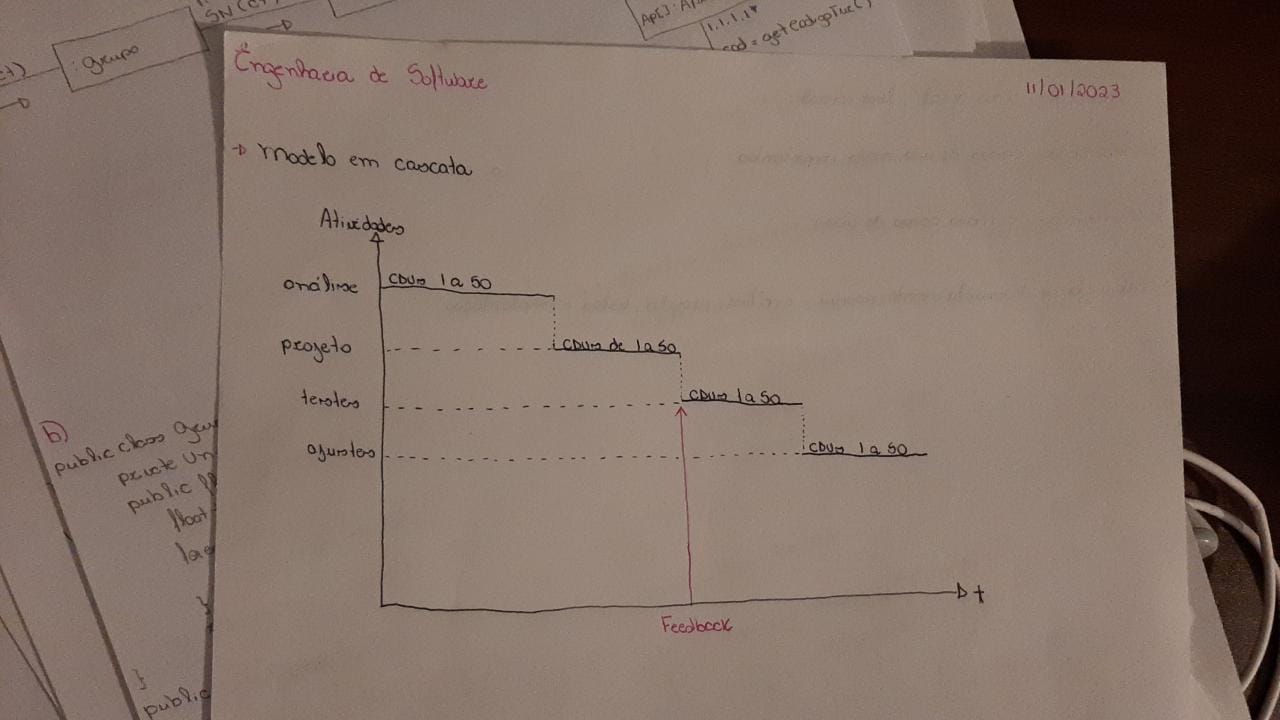 Engenharia de Software
11/01/2023
→ modelo em cascata
Atividades
análise
CDUs 1 a 50
projeto
CDUs de 1 a 50
testes
CDUs 1 a 50
ajustes
CDUs 1 a 50
t
Feedback
: grupo
1.1.1.1
cod = getCodigoTuc()
b)
public class
private
public
float
}
}
public